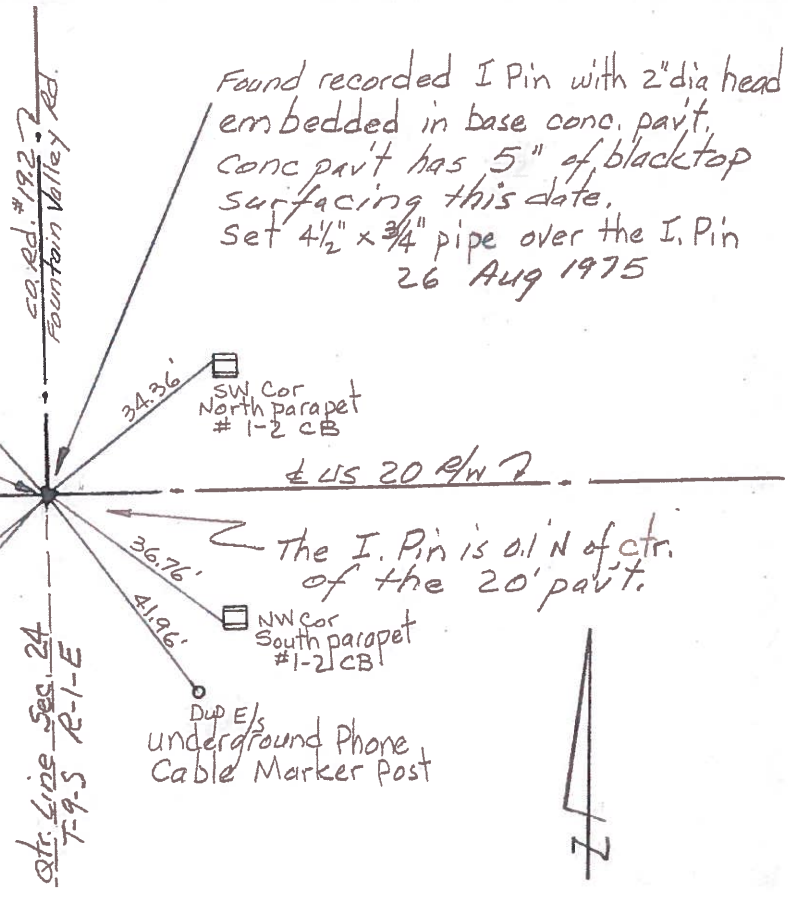 Found recorded I Pin with 2" dia head
embedded in base conc. pav't.
Conc pav't has 5" of blacktop
surfacing this date.
Set 4½" x ¾" pipe over the I. Pin
26 Aug 1975
Co. Rd. #192
Fountain Valley Rd.
34.36'
SW Cor
North parapet
# 1-2 CB
℄ US 20 R/W
The I. Pin is 0.1' N of ctr.
of the 20' pav't.
36.76'
41.96'
NW Cor
South parapet
#1-2 CB
Dup E/s
underground Phone
Cable Marker Post
Qtr. Line Sec. 24
T-9-S R-1-E
N